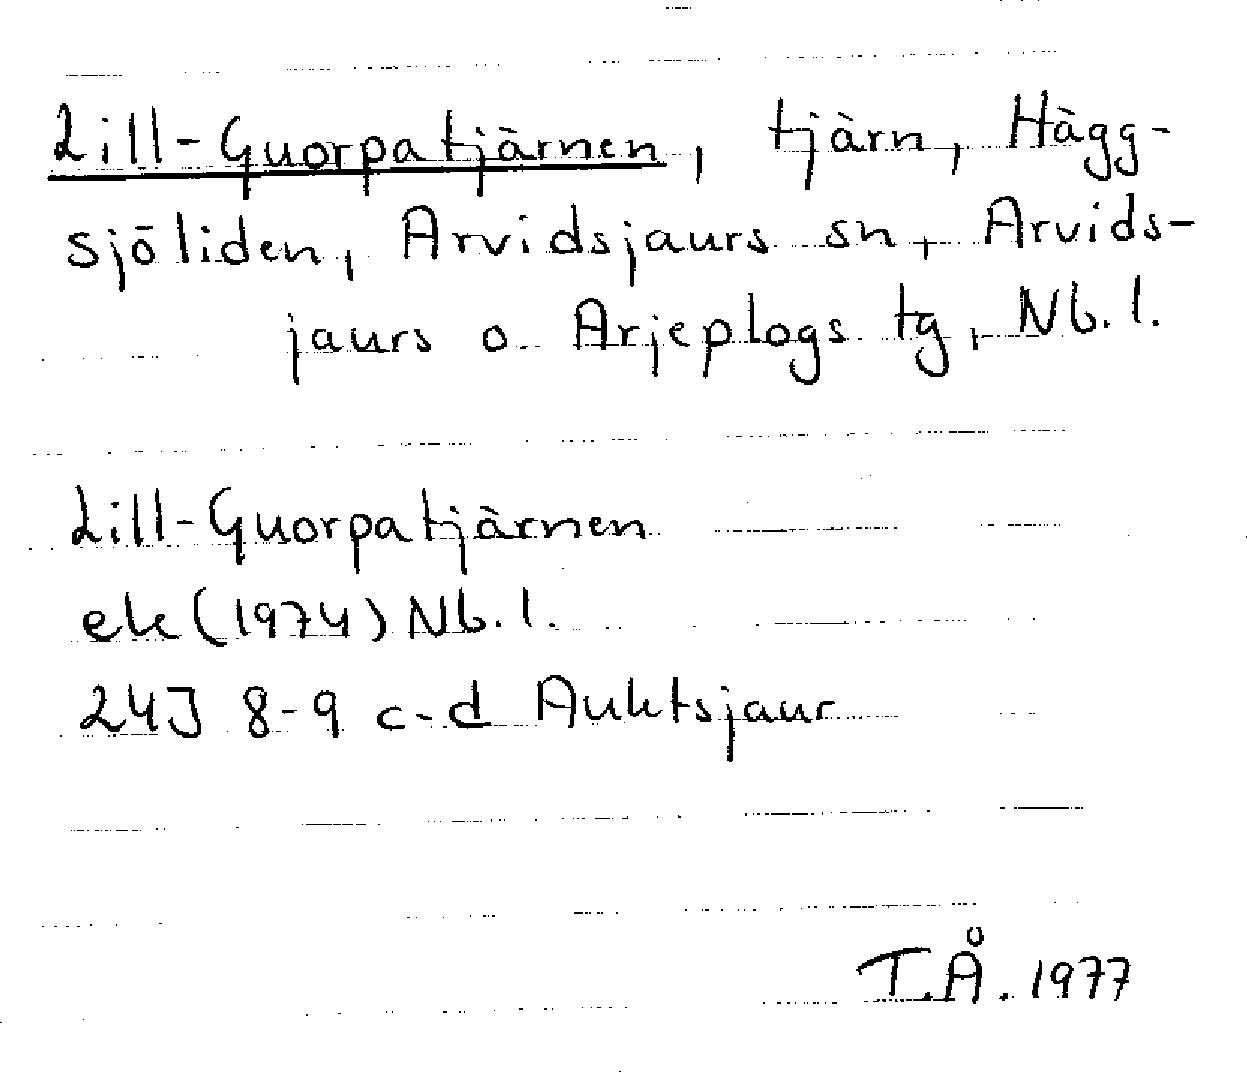 Lill-Guorpatjärnen, tjärn, Hägg-
sjöliden, Arvidsjaurs sn, Arvids-
jaurs o. Arjeplogs tg, Nb. l.
Lill-Guorpatjärnen
ek (1974) Nb. l.
24J 8-9 c-d Auktsjaur
T.Å. 1977